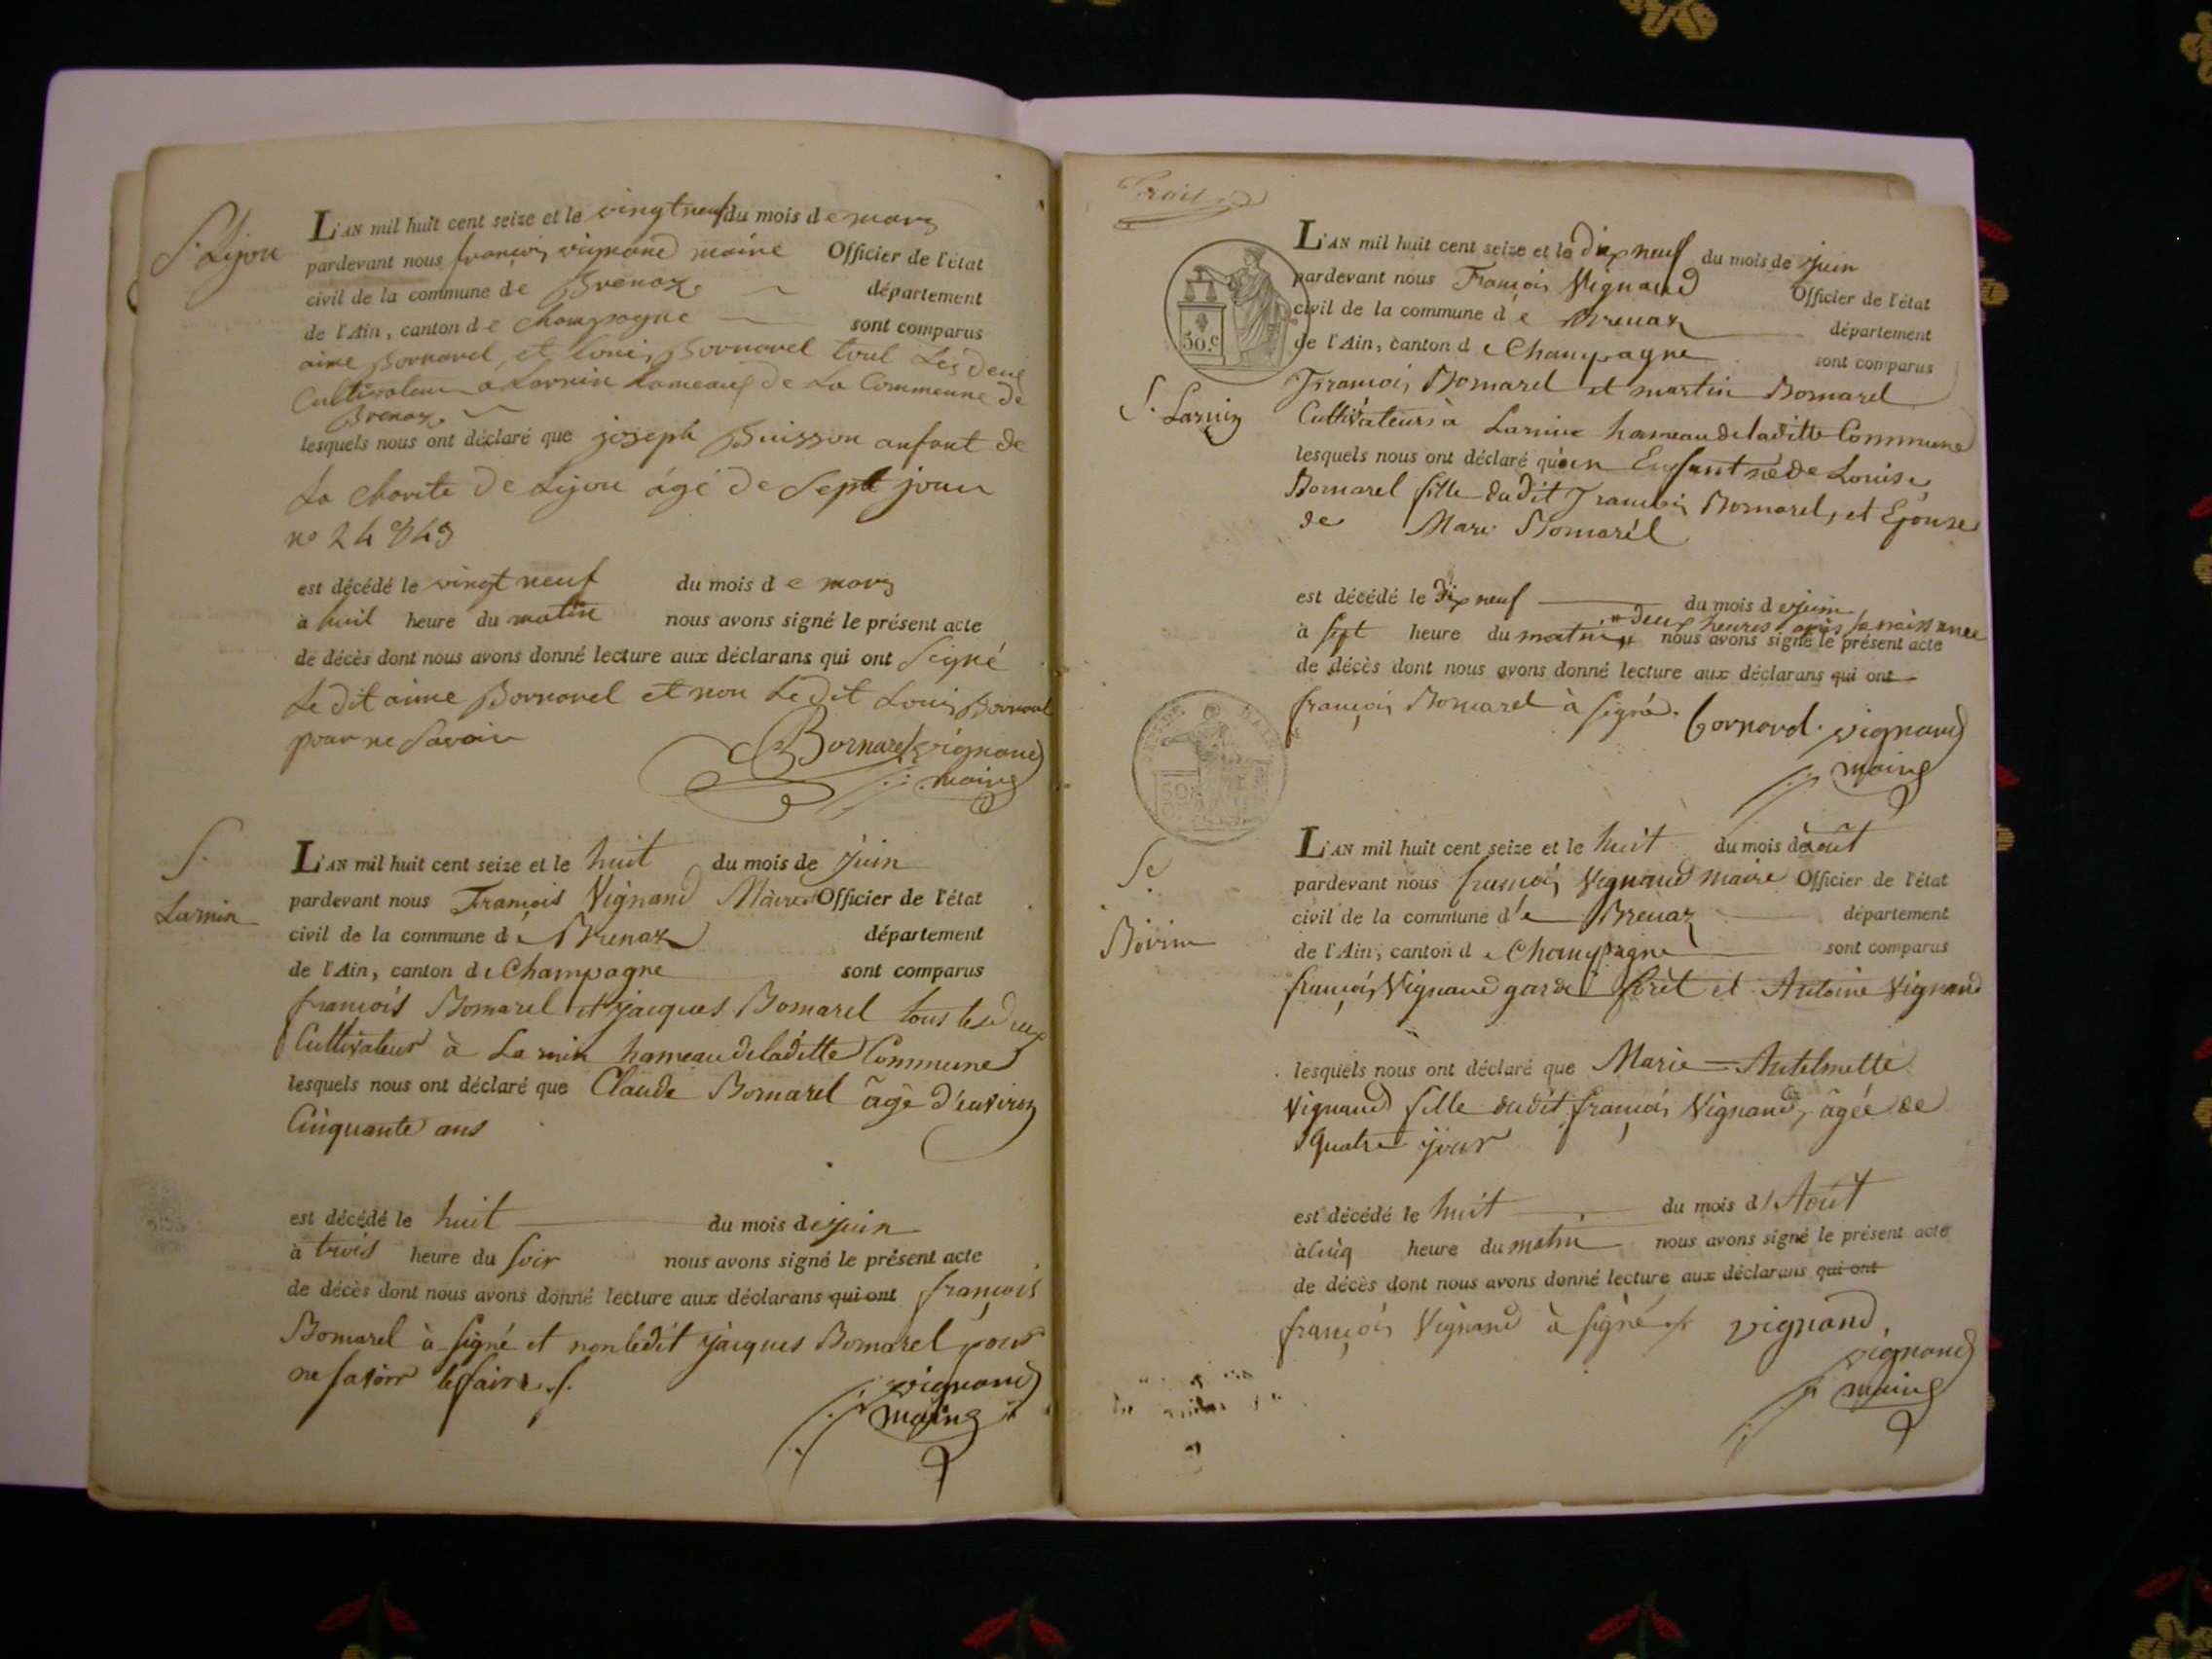 S. Lijon
L'AN mil huit cent seize et le vingt neuf du mois de mars
pardevant nous françois vignand maire Officier de l'état
civil de la commune de Brenaz département
de l'Ain, canton de Champagne sont comparus
aime Bornarel et Louis Bornarel tout Les deux
Cultivateur a Larnin hameaux de La Commeune de
Brenaz
lesquels nous ont déclaré que joseph Buisson anfant de
La Charite de Lijon âgé de Sept jour
est décédé le vingt neuf du mois de mars
à huit heure du matin nous avons signé le présent acte
de décès dont nous avons donné lecture aux déclarans qui ont Signé
Le dit aime Bornarel et non Le dit Louis Bornarel
pour ne Savoir
Bornarel vignand
maire
S.
Larnin
L'AN mil huit cent seize et le huit du mois de juin
pardevant nous François Vignand Maire Officier de l'état
civil de la commune de Brenaz département
de l'Ain, canton de Champagne sont comparus
françois Bornarel et jacques Bornarel tous les deux
Cultivateur à Larnin hameau de laditte Commune
lesquels nous ont déclaré que Claude Bornarel âgé d'environ
Cinquante ans
est décédé le huit du mois de juin
à trois heure du soir nous avons signé le présent acte
de décès dont nous avons donné lecture aux déclarans qui ont françois
Bornarel à signé et non ledit jacques Bornarel pour
ne savoir le faire
vignand
maire
50.c
S. Larnin
L'AN mil huit cent seize et le dix neuf du mois de juin
pardevant nous François Vignand Officier de l'état
civil de la commune de Brenaz département
de l'Ain, canton de Champagne sont comparus
François Bornarel et martin Bornarel
Cultivateurs à Larnin hameau de laditte Commune
lesquels nous ont déclaré qu'un Enfant né de Louise
Bornarel fille dudit François Bornarel, et Epouse
de Marc Bornarel
est décédé le dix neuf du mois de juin
deux heures après sa naissance
à sept heure du matin nous avons signé le présent acte
de décès dont nous avons donné lecture aux déclarans qui ont
françois Bornarel à signé. bornarel. vignand
maire
S.
Bovin
L'AN mil huit cent seize et le huit du mois de août
pardevant nous françois Vignand Maire Officier de l'état
civil de la commune de Brenaz département
de l'Ain, canton de Champagne sont comparus
françois Vignand garde forêt et Antoine Vignand
lesquels nous ont déclaré que Marie-Antelmette
Vignand fille dudit françois Vignand, âgée de
quatre jour
est décédé le huit du mois d'Août
à cinq heure du matin nous avons signé le présent acte
de décès dont nous avons donné lecture aux déclarans qui ont
françois Vignand à signé vignand
vignand
maire